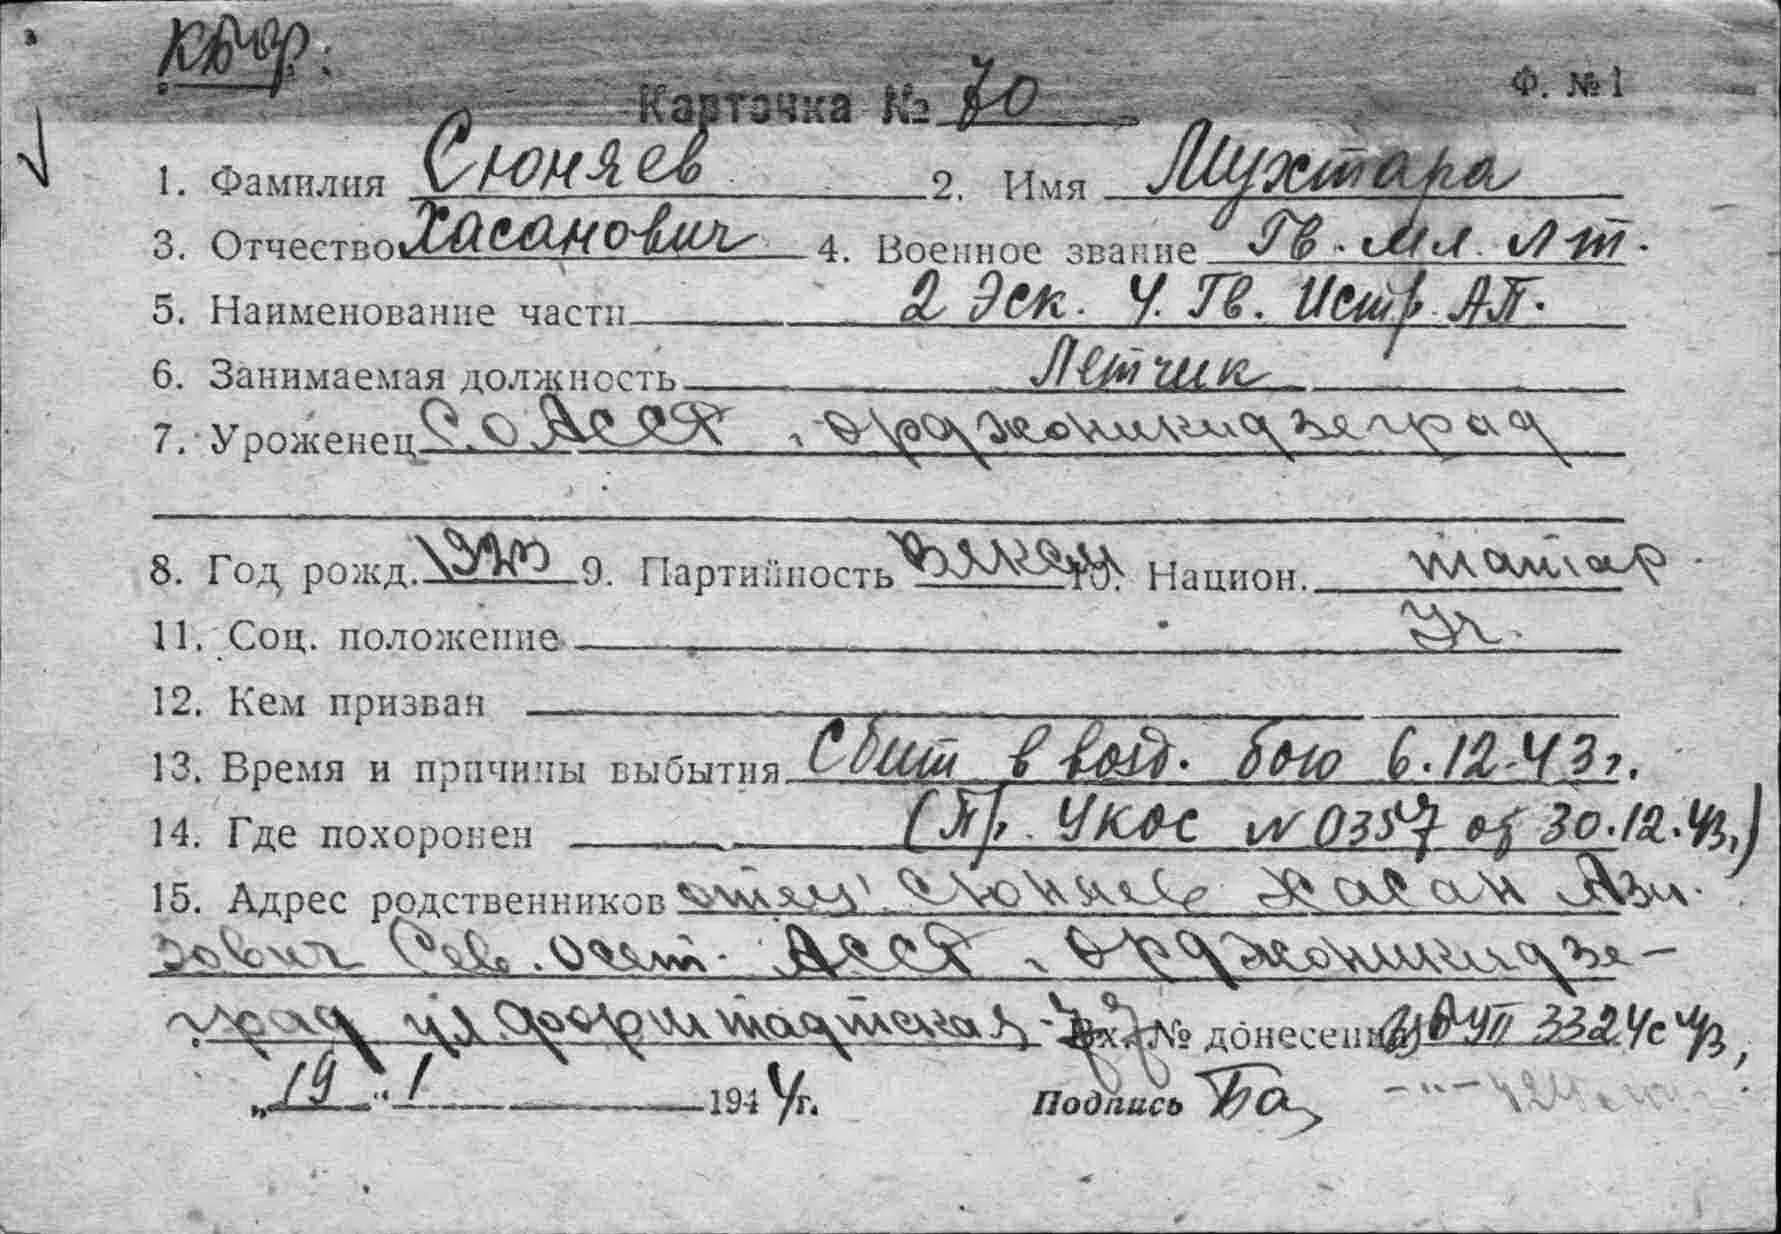 КБФ.
Карточка № 70 Ф. № 1
1. Фамилия Сюняев 2. Имя Мухтара
3. Отчество Хасанович 4. Военное звание Гв. мл. лт.
5. Наименование части 2 Эск. 4. Гв. Истр. АП.
6. Занимаемая должность Летчик
7. Уроженец С.О.АССР, Орджоникидзеград
8. Год рожд. 1923 9. Партийность ВЛКСМ 10. Национ. татар
11. Соц. положение Уч.
12. Кем призван
13. Время и причины выбытия Сбит в возд. бою 6.12.43г.
14. Где похоронен (Пр. УКОС № 0357 от 30.12.43.)
15. Адрес родственников отец Сюняев Хасан Ази-
зович Сев. Осет. АССР, Орджоникидзе-
град ул. Форштадтская Вх. № донесения 3324с 43,
„19“ 1 1944г. Подпись Ба